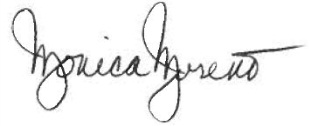 Monica Moreno